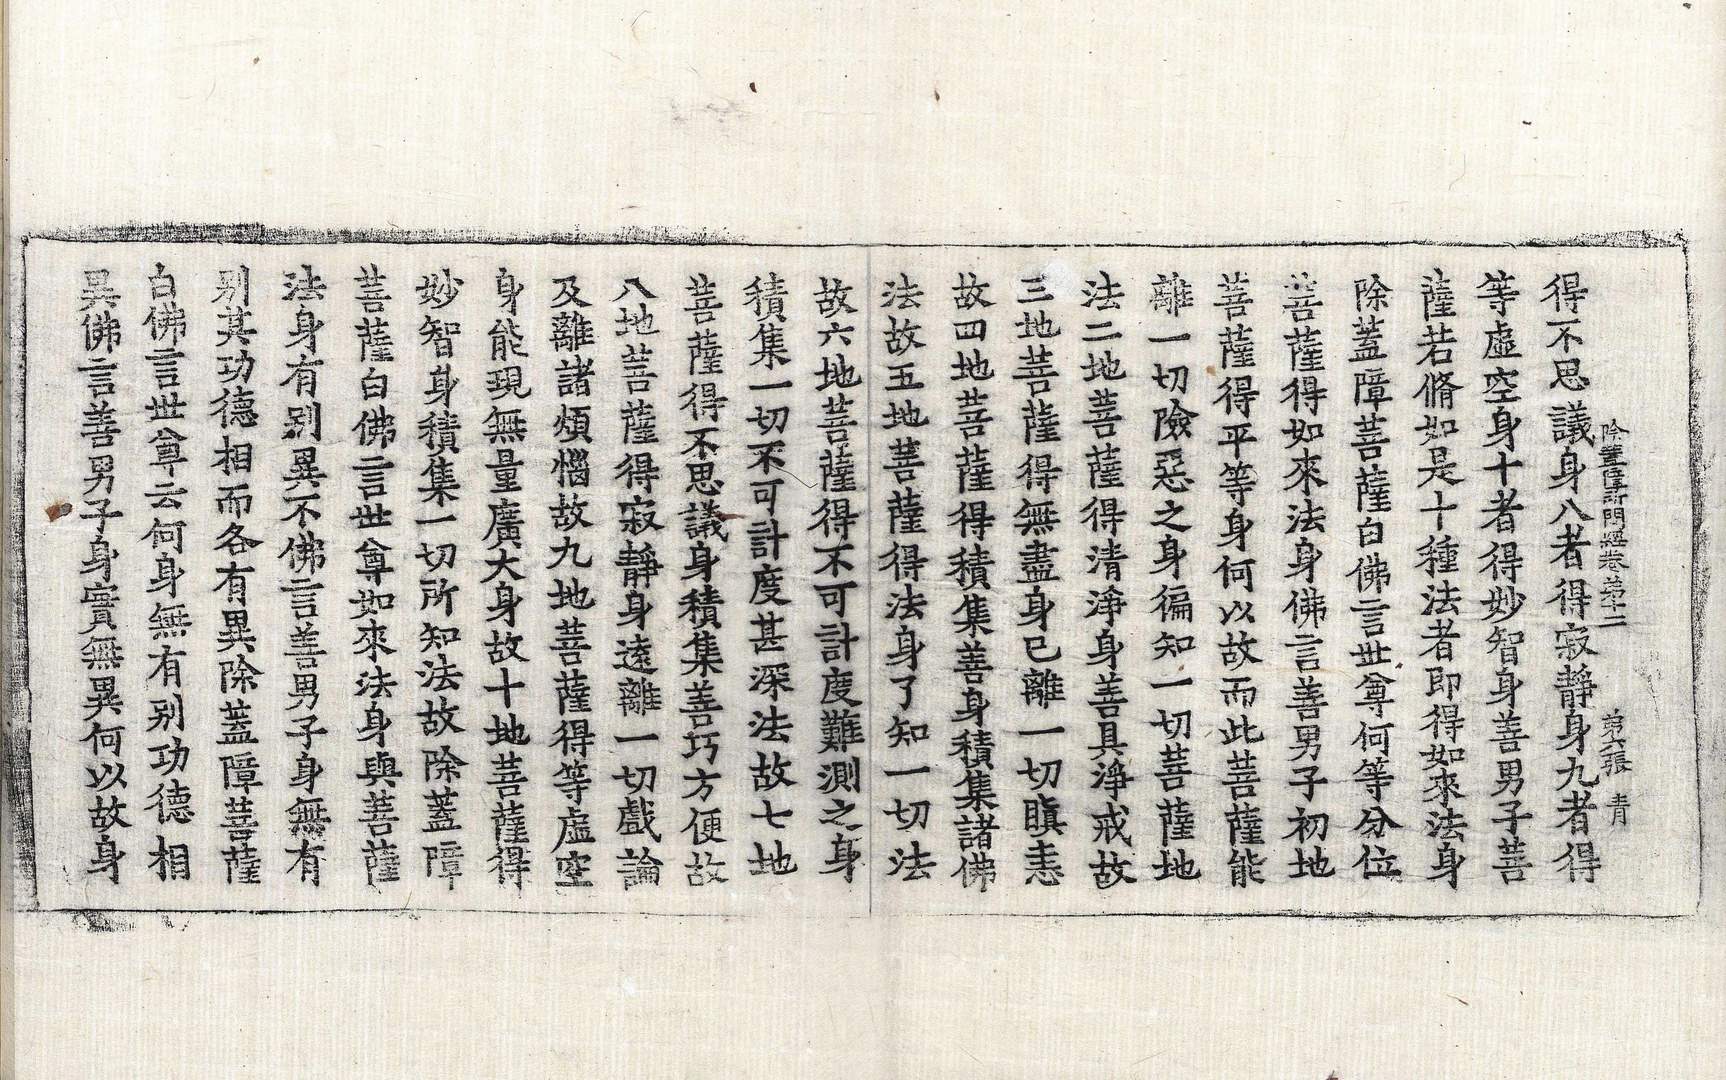 除蓋障所問經卷第十二　第六張　青
得不思議身八者得寂靜身九者得
等虛空身十者得妙智身善男子菩
薩若脩如是十種法者即得如來法身
除蓋障菩薩白佛言世尊何等分位
菩薩得如來法身佛言善男子初地
菩薩得平等身何以故而此菩薩能
離一切險惡之身徧知一切菩薩地
法二地菩薩得清淨身善具淨戒故
三地菩薩得無盡身已離一切瞋恚
故四地菩薩得積集善身積集諸佛
法故五地菩薩得法身了知一切法
故六地菩薩得不可計度難測之身
積集一切不可計度甚深法故七地
菩薩得不思議身積集善巧方便故
八地菩薩得寂靜身遠離一切戲論
及離諸煩惱故九地菩薩得等虛空
身能現無量廣大身故十地菩薩得
妙智身積集一切所知法故除蓋障
菩薩白佛言世尊如來法身與菩薩
法身有別異不佛言善男子身無有
別其功德相而各有異除蓋障菩薩
白佛言世尊云何身無有別功德相
異佛言善男子身實無異何以故身